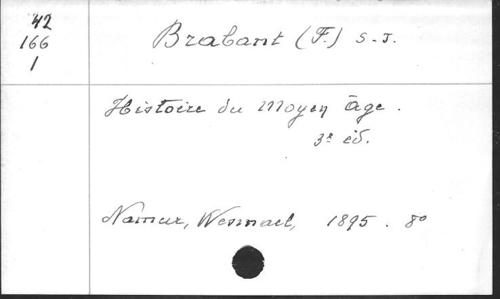 42
166
1
Brabant (F.) S.J.
Histoire du Moyen Âge.
3e éd.
Namur, Wesmael, 1895. 8o